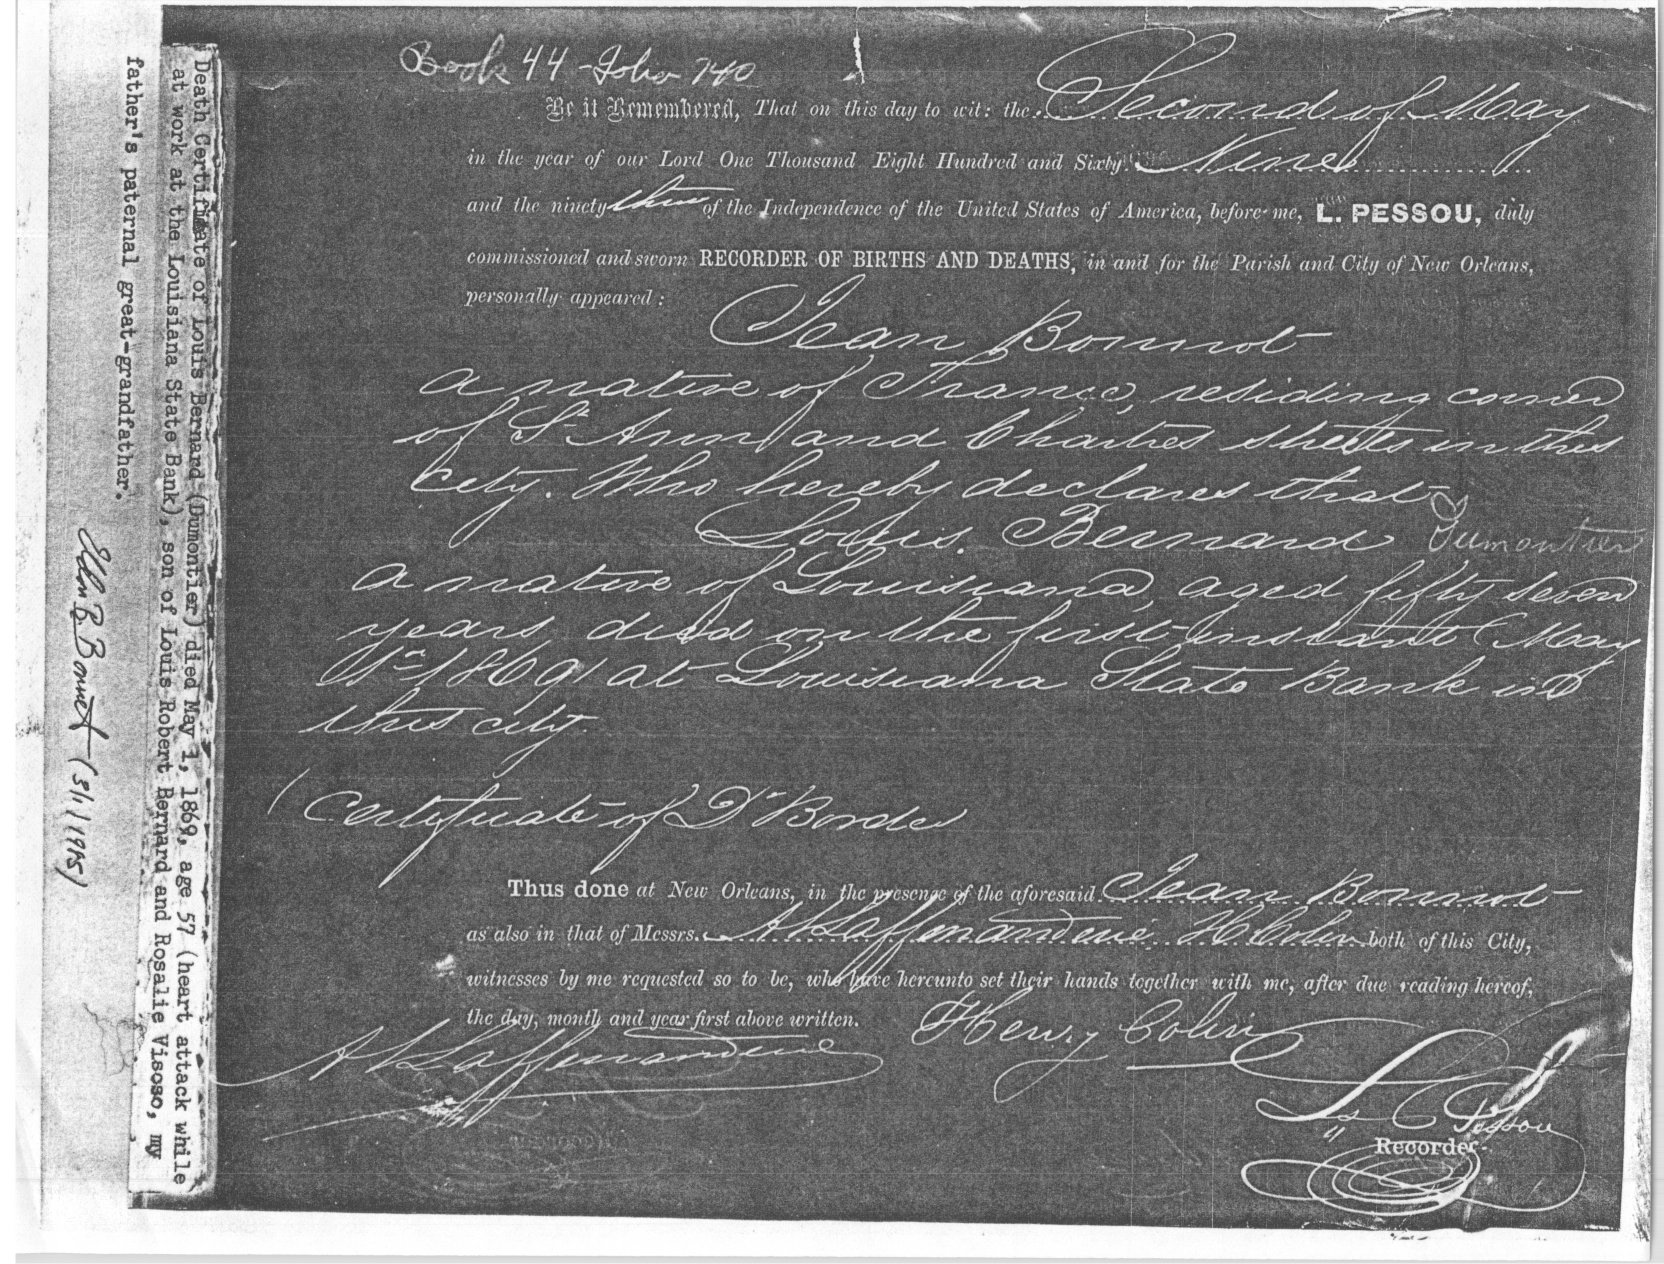 Book 44 - Folio 740
Be it Remembered, That on this day to wit: the Second of May
in the year of our Lord One Thousand Eight Hundred and Sixty Nine
and the ninety third of the Independence of the United States of America, before me, L. PESSOU, duly
commissioned and sworn RECORDER OF BIRTHS AND DEATHS, in and for the Parish and City of New Orleans,
personally appeared:
Jean Bonnot
a native of France, residing corner
of St Ann and Chartres streets in this
city. Who hereby declares that
Louis Bernard Dumontier
a native of Louisiana, aged fifty seven
years, died on the first instant (May
1st 1869) at Louisiana State Bank in
this city.
Certificate of Dr Borde
Thus done at New Orleans, in the presence of the aforesaid Jean Bonnot
as also in that of Messrs. H Colin both of this City,
witnesses by me requested so to be, who have hereunto set their hands together with me, after due reading hereof,
the day, month and year first above written.
Henry Colin
Ls C Pessou
Recorder
Death Certificate of Louis Bernard (Dumontier) died May 1, 1869, age 57 (heart attack while
at work at the Louisiana State Bank), son of Louis Robert Bernard and Rosalie Visoso, my
father's paternal great-grandfather.